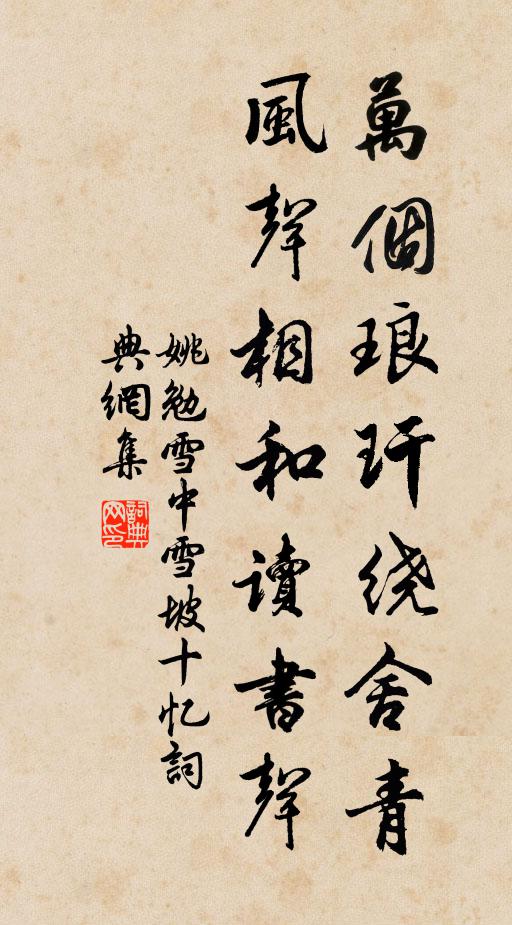 萬個琅玕绕舍青
風聲相和讀書聲
姚勉雪中雪坡十忆詞
典網集
詞典网印